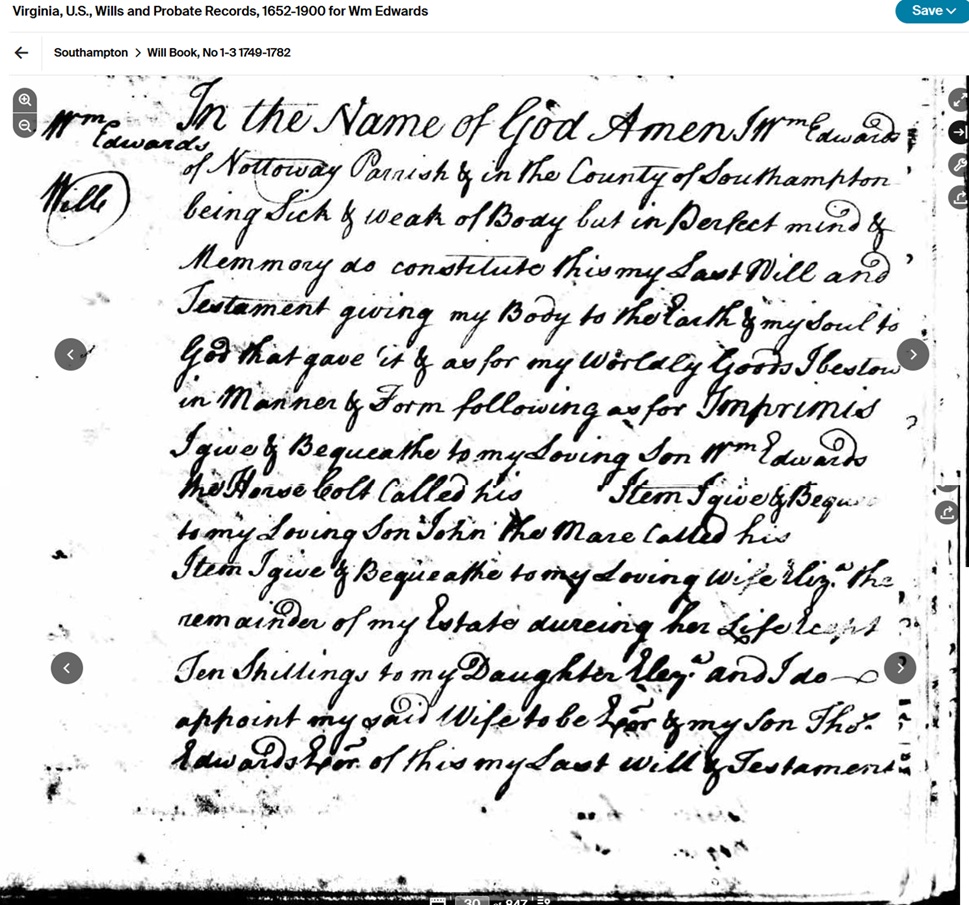 Virginia, U.S., Wills and Probate Records, 1652-1900 for Wm Edwards
Save
Southampton > Will Book, No 1-3 1749-1782
Wm Edwards
Will
In the Name of God Amen I Wm Edwards
of Nottoway Parrish & in the County of Southampton
being Sick & weak of Body but in Perfect mind &
Memmory do constitute this my Last Will and
Testament giving my Body to the Earth & my Soul to
God that gave it & as for my Worldly Goods I bestow
in Manner & Form following as for Imprimis
I give & Bequeathe to my Loving Son Wm Edwards
the Horse Colt Called his Item I give & Bequ
to my Loving Son John the Mare Called his
Item I give & Bequeathe to my Loving wife Eliza. the
remainder of my Estate dureing her Life Except
Ten Shillings to my Daughter Elez.a and I do
appoint my said Wife to be Exor & my Son Tho.s
Edwards Exor. of this my Last will & Testament
30 of 847